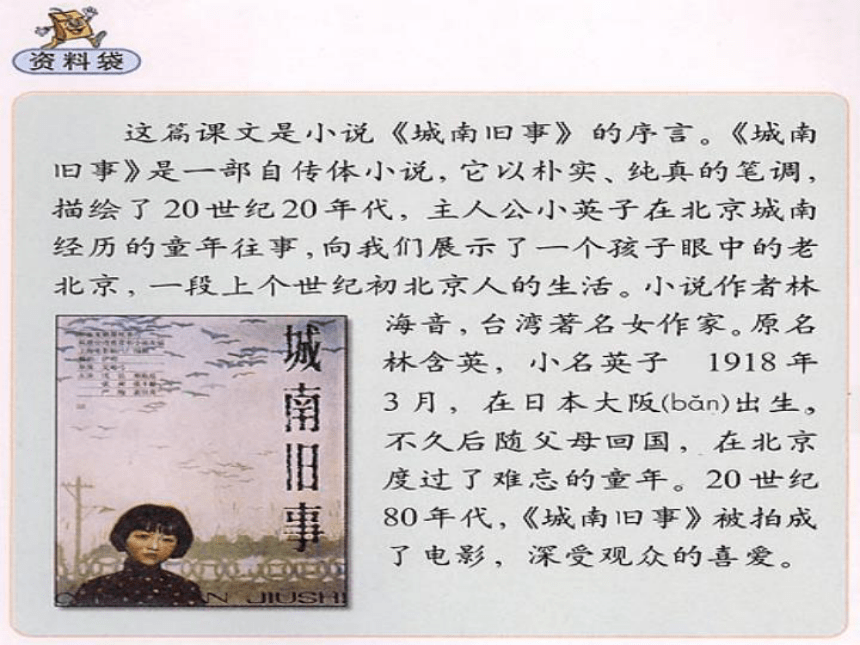 资料袋
这篇课文是小说《城南旧事》的序言。《城南
旧事》是一部自传体小说，它以朴实、纯真的笔调，
描绘了20世纪20年代，主人公小英子在北京城南
经历的童年往事，向我们展示了一个孩子眼中的老
北京，一段上个世纪初北京人的生活。小说作者林
海音，台湾著名女作家。原名
林含英，小名英子 1918年
3月，在日本大阪(bǎn)出生。
不久后随父母回国，在北京
度过了难忘的童年。20世纪
80年代，《城南旧事》被拍成
了电影，深受观众的喜爱。
城南旧事
JIUSHI